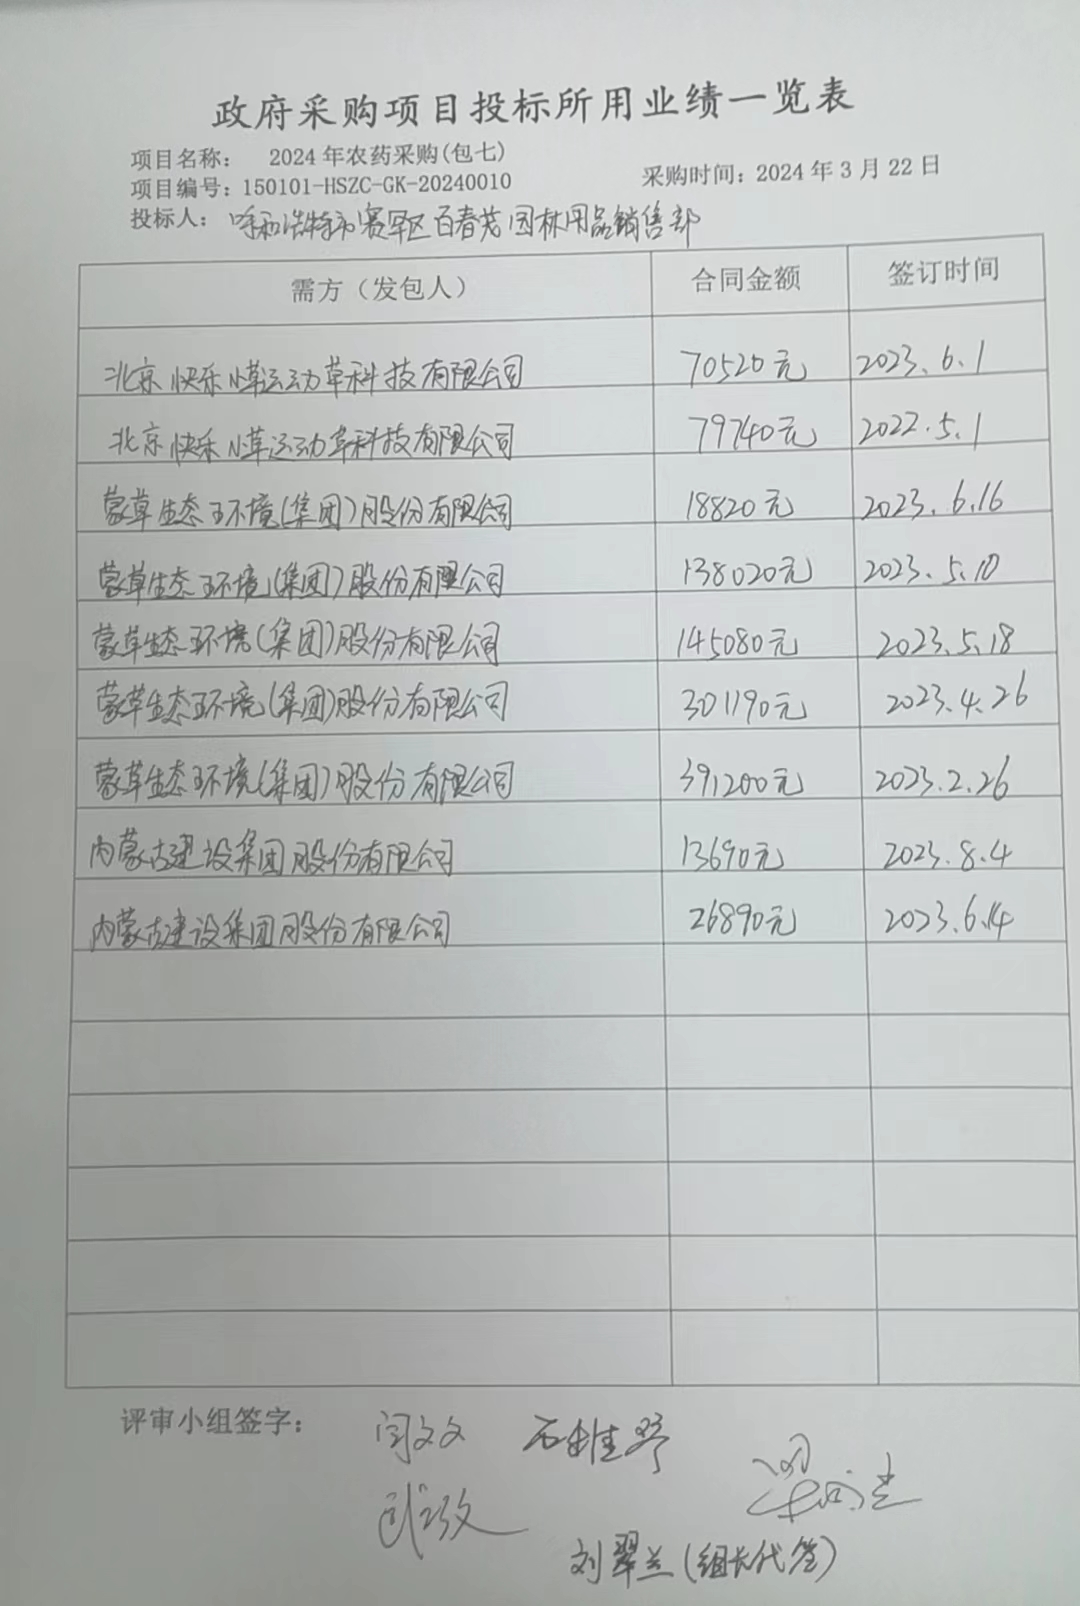 政府采购项目投标所用业绩一览表
项目名称： 2024年农药采购(包七)
项目编号：150101-HSZC-GK-20240010 采购时间：2024年3月22日
投标人：呼和浩特市赛罕区百春茂园林用品销售部
需方（发包人） 合同金额 签订时间
北京快乐小草运动草科技有限公司 70520元 2023.6.1
北京快乐小草运动草科技有限公司 79740元 2022.5.1
蒙草生态环境(集团)股份有限公司 18820元 2023.6.16
蒙草生态环境(集团)股份有限公司 138020元 2023.5.10
蒙草生态环境(集团)股份有限公司 145080元 2023.5.18
蒙草生态环境(集团)股份有限公司 301190元 2023.4.26
蒙草生态环境(集团)股份有限公司 391200元 2023.2.26
内蒙古建设集团股份有限公司 13690元 2023.8.4
内蒙古建设集团股份有限公司 26890元 2023.6.14
评审小组签字：
闫文文
刘翠兰(组长代签)